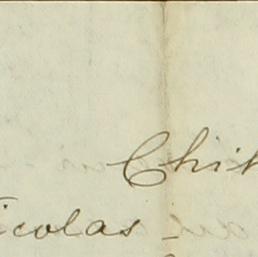 Chih
icolas -